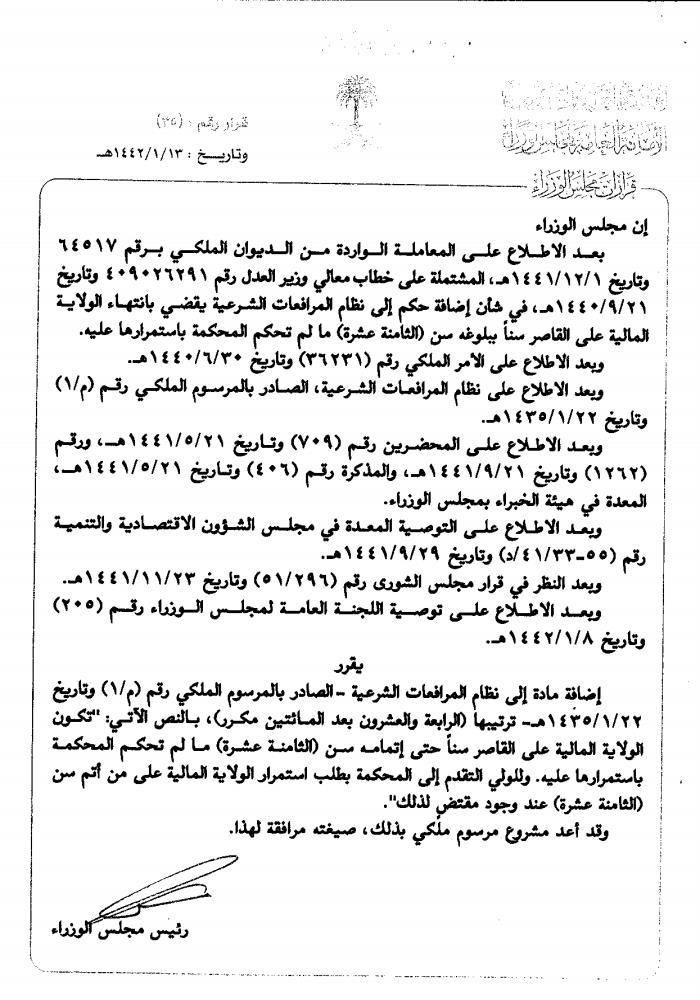 قرار رقم : (٣٥)
وتاريخ : ١٤٤٢/١/١٣هـ
الأمانة العامة لمجلس الوزراء
قرارات مجلس الوزراء
إن مجلس الوزراء
بعد الاطلاع على المعاملة الواردة من الديوان الملكي برقم ٦٤٥١٧
وتاريخ ١٤٤١/١٢/١هـ، المشتملة على خطاب معالي وزير العدل رقم ٤٠٩٠٢٦٢٩١ وتاريخ
١٤٤٠/٩/٢١هـ، في شأن إضافة حكم إلى نظام المرافعات الشرعية يقضي بانتهاء الولاية
المالية على القاصر سناً ببلوغه سن (الثامنة عشرة) ما لم تحكم المحكمة باستمرارها عليه.
وبعد الاطلاع على الأمر الملكي رقم (٣٦٢٣١) وتاريخ ١٤٤٠/٦/٣٠هـ.
وبعد الاطلاع على نظام المرافعات الشرعية، الصادر بالمرسوم الملكي رقم (م/١)
وتاريخ ١٤٣٥/١/٢٢هـ.
وبعد الاطلاع على المحضرين رقم (٧٠٩) وتاريخ ١٤٤١/٥/٢١هـ، ورقم
(١٢٦٢) وتاريخ ١٤٤١/٩/٢١هـ، والمذكرة رقم (٤٠٦) وتاريخ ١٤٤١/٥/٢١هـ،
المعدة في هيئة الخبراء بمجلس الوزراء.
وبعد الاطلاع على التوصية المعدة في مجلس الشؤون الاقتصادية والتنمية
رقم (٥٥-٤١/٣٣/د) وتاريخ ١٤٤١/٩/٢٩هـ.
وبعد النظر في قرار مجلس الشورى رقم (٥١/٢٩٦) وتاريخ ١٤٤١/١١/٢٣هـ.
وبعد الاطلاع على توصية اللجنة العامة لمجلس الوزراء رقم (٢٠٥)
وتاريخ ١٤٤٢/١/٨هـ.
يقرر
إضافة مادة إلى نظام المرافعات الشرعية -الصادر بالمرسوم الملكي رقم (م/١) وتاريخ
١٤٣٥/١/٢٢هـ- ترتيبها (الرابعة والعشرون بعد المائتين مكرر)، بالنص الآتي: "تكون
الولاية المالية على القاصر سناً حتى إتمامه سن (الثامنة عشرة) ما لم تحكم المحكمة
باستمرارها عليه. وللولي التقدم إلى المحكمة بطلب استمرار الولاية المالية على من أتم سن
(الثامنة عشرة) عند وجود مقتضٍ لذلك".
وقد أعد مشروع مرسوم ملكي بذلك، صيغته مرافقة لهذا.
رئيس مجلس الوزراء